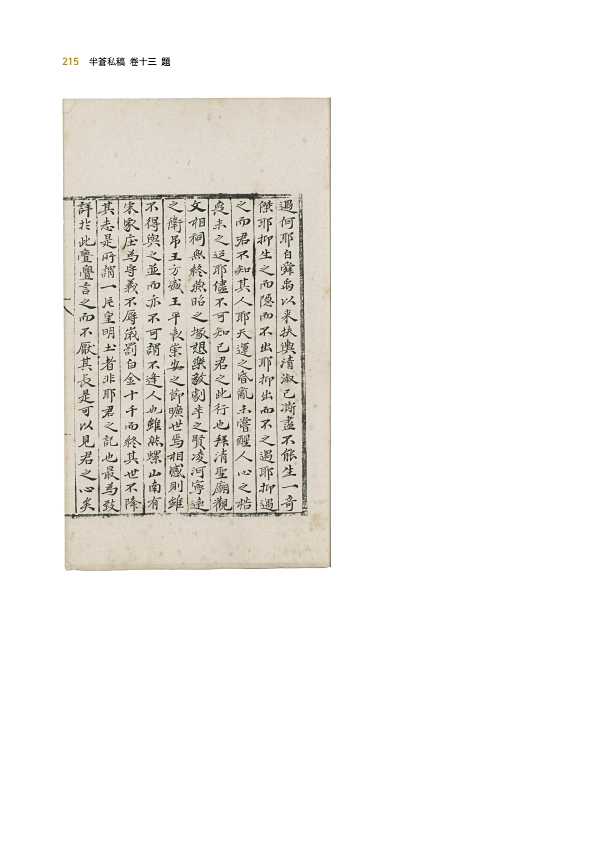 215 半蒼私稿 卷十三 題
遇何耶自舜禹以來扶輿清淑已澌盡不能生一奇
傑耶抑生之而隱而不出耶抑出而不之遇耶抑遇
之而君不知其人耶天運之昏亂未嘗醒人心之梏
喪未之返耶儘不可知已君之此行也拜清聖廟觀
文相祠無終燕昭之塚想樂毅劇辛之賢凌河寧遠
之衛吊王方盛王平長崇安之節曠世焉相感則雖
不得與之並而亦不可謂不逢人也雖然螺山南有
宋家庄為守義不辱歲罰白金十千而終其世不降
其志是所謂一片皇明土者非耶君之記也最為致
詳於此亹亹言之而不厭其長是可以見君之心矣